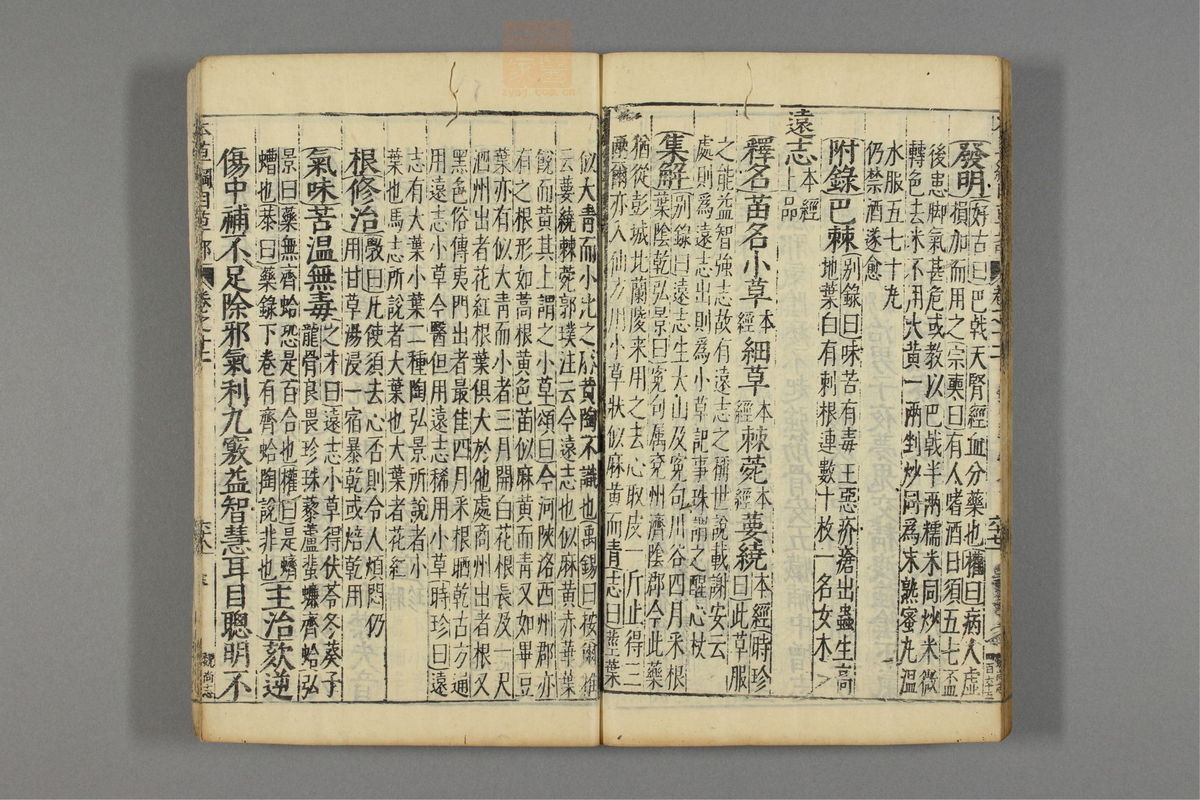 發明好古曰巴戟天腎經血分藥也權曰病人虛
損加而用之宗奭曰有人嗜酒日須五七盃
後患脚氣甚危或教以巴戟半兩糯米同炒米微
轉色去米不用大黃一兩剉炒同爲末熟蜜丸溫
水服五七十丸
仍禁酒遂愈
附錄巴棘別錄曰味苦有毒主惡疥瘡出蟲生高
地葉白有刺根連數十枚一名女木
遠志本經
上品
釋名苗名小草本經細草本經棘菀本經葽繞本經時珍
曰此草服
之能益智強志故有遠志之稱世說載謝安云
處則爲遠志出則爲小草記事珠謂之醒心杖
集解別錄曰遠志生太山及冤句川谷四月采根
葉陰乾弘景曰冤句屬兗州濟陰郡今此藥
猶從彭城北蘭陵來用之去心取皮一斤止得三
兩爾亦入仙方用小草狀似麻黃而青志曰莖葉
似大青而小比之麻黃陶不識也禹錫曰按爾雅
云葽繞棘菀郭璞注云今遠志也似麻黃赤華葉
銳而黃其上謂之小草頌曰今河陝洛西州郡亦
有之根形如蒿根黃色苗似麻黃而青又如畢豆
葉亦有似大青而小者三月開白花根長及一尺
泗州出者花紅根葉俱大於他處商州出者根又
黑色俗傳夷門出者最佳四月采根晒乾古方通
用遠志小草今醫但用遠志稀用小草時珍曰遠
志有大葉小葉二種陶弘景所說者小
葉也馬志所說者大葉也大葉者花紅
根修治斅曰凡使須去心否則令人煩悶仍
用甘草湯浸一宿暴乾或焙乾用
氣味苦溫無毒之才曰遠志小草得伏苓冬葵子
龍骨良畏珍珠藜蘆蜚蠊齊蛤弘
景曰藥無齊蛤恐是百合也權曰是蠐
螬也恭曰藥錄下卷有齊蛤陶說非也主治欬逆
傷中補不足除邪氣利九竅益智慧耳目聰明不
本草綱目草部
卷之十二